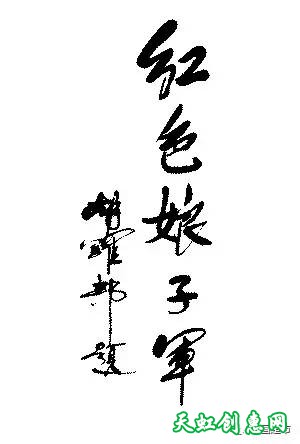 红色娘子軍
胡耀邦題
天虹创意网